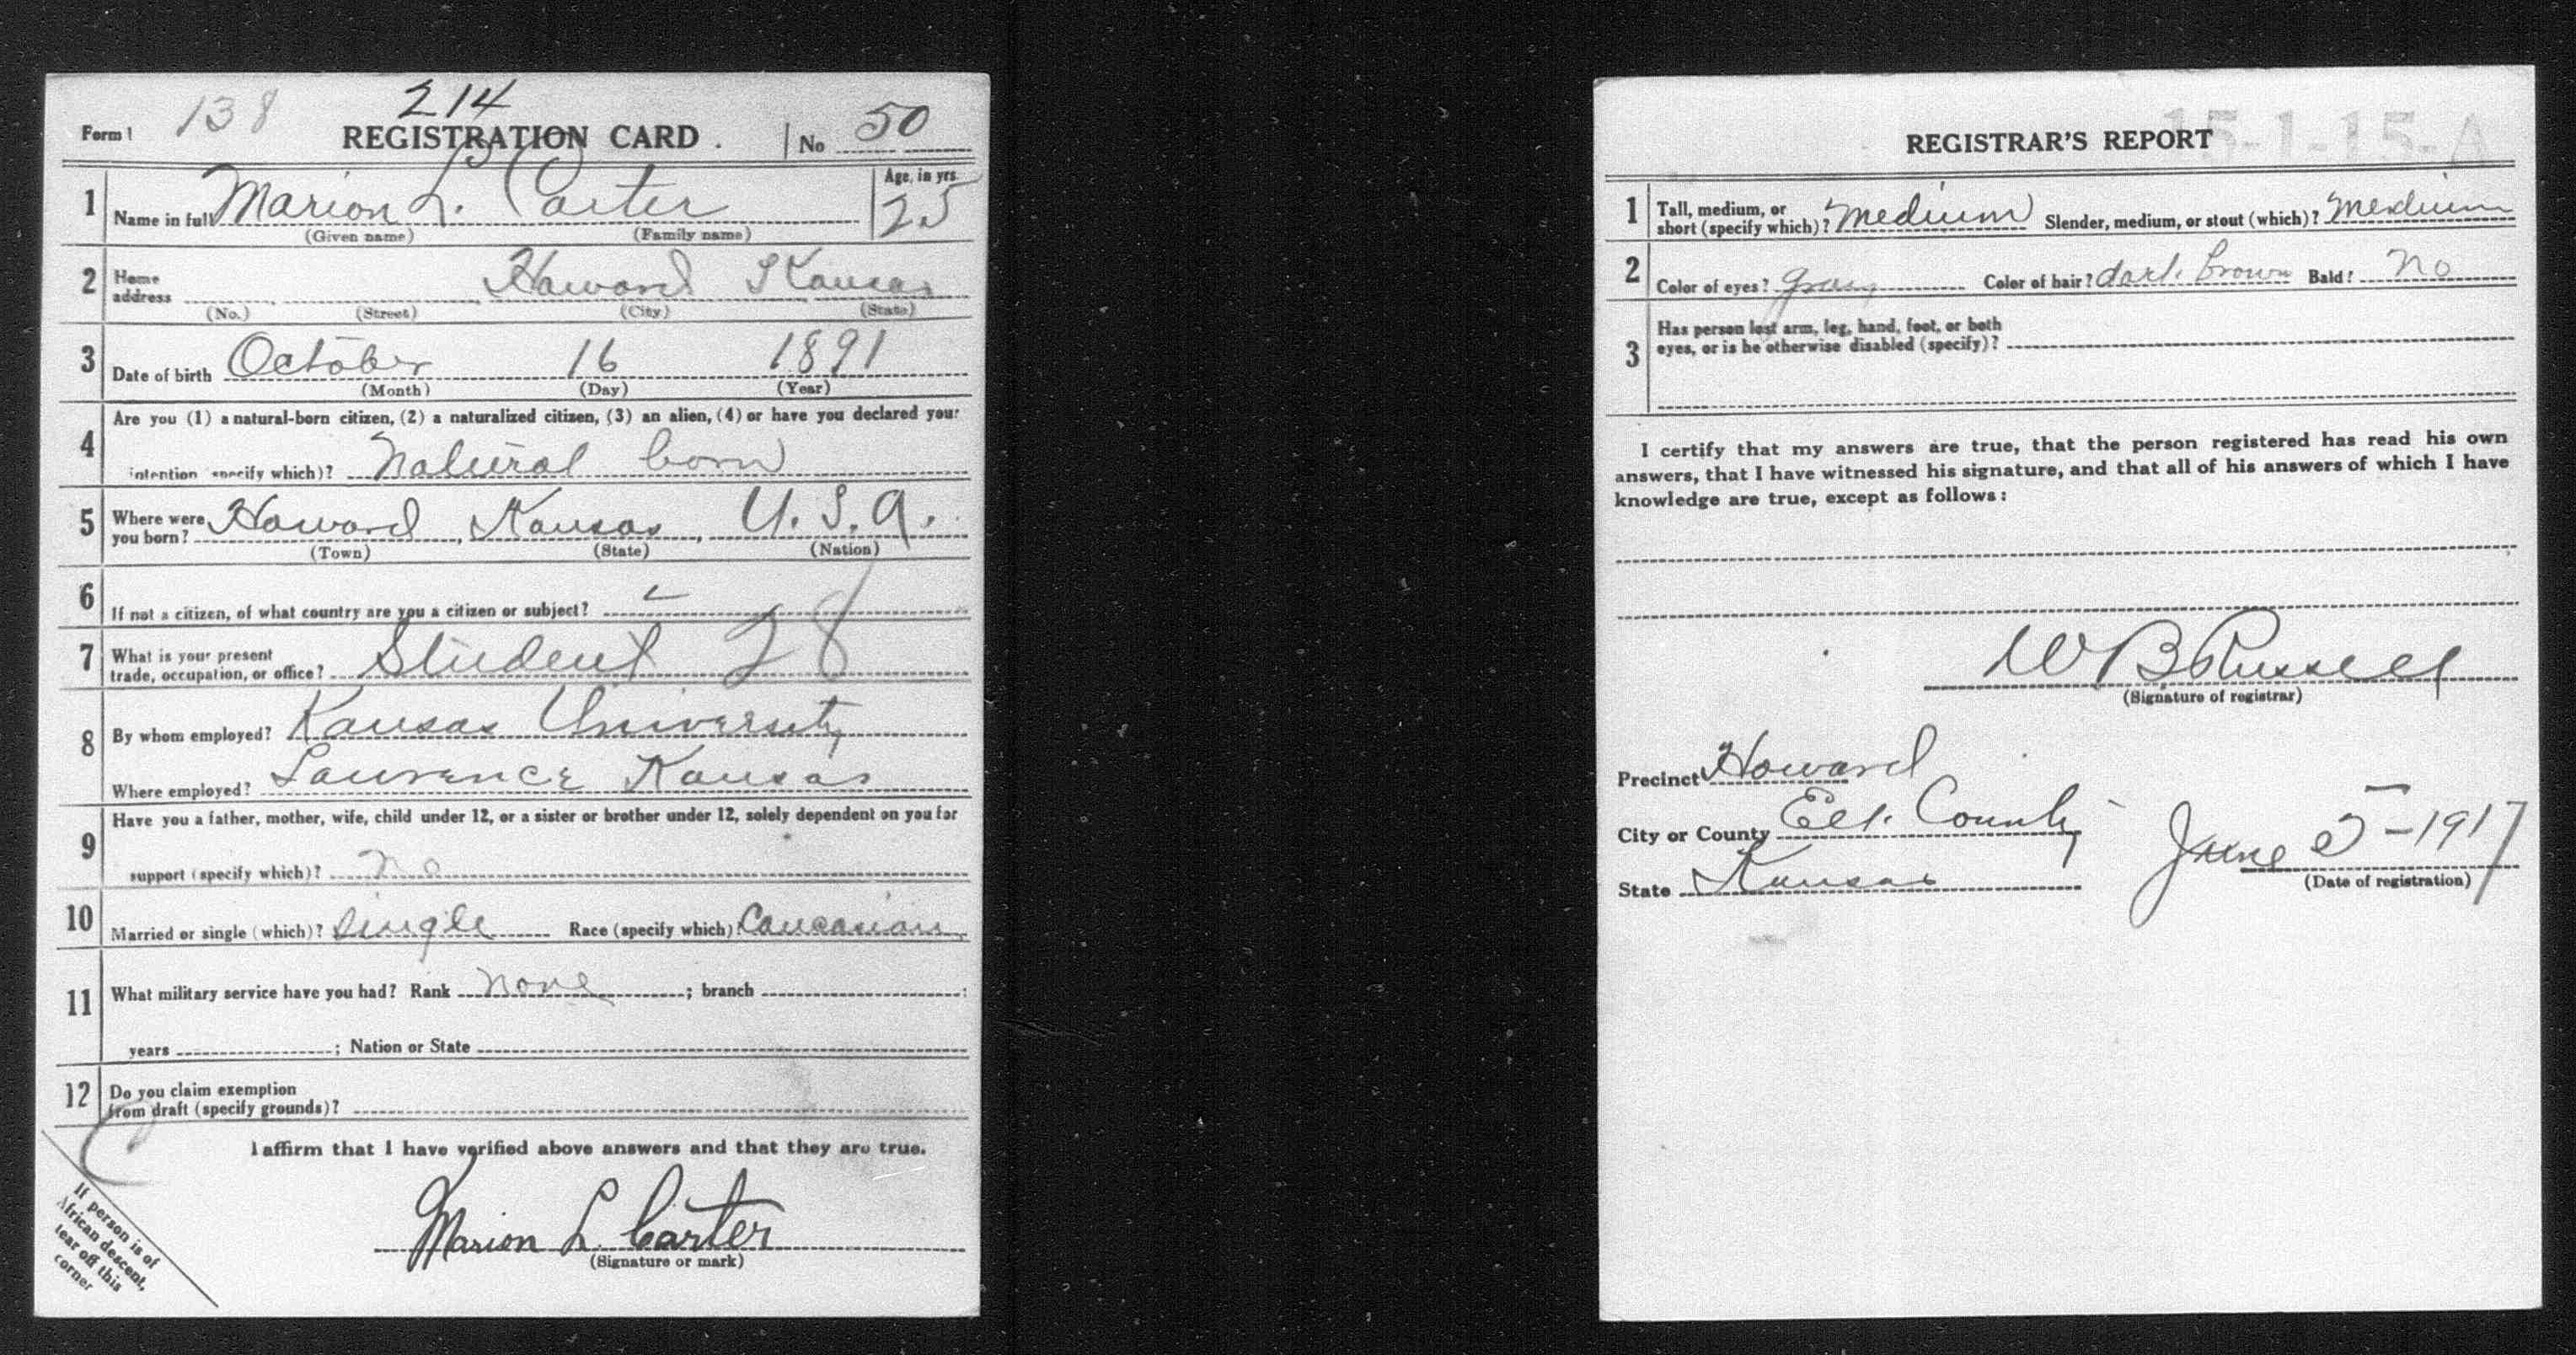 138 214
Form 1 REGISTRATION CARD. No 50
1 Name in full Marion L. Carter Age, in yrs. 25
(Given name) (Family name)
2 Home address Howard Kansas
(No.) (Street) (City) (State)
3 Date of birth October 16 1891
(Month) (Day) (Year)
4 Are you (1) a natural-born citizen, (2) a naturalized citizen, (3) an alien, (4) or have you declared your
intention specify which)? Natural born
5 Where were you born? Howard, Kansas, U.S.A.
(Town) (State) (Nation)
6 If not a citizen, of what country are you a citizen or subject?
7 What is your present
trade, occupation, or office? Student 28
8 By whom employed? Kansas University
Where employed? Lawrence Kansas
9 Have you a father, mother, wife, child under 12, or a sister or brother under 12, solely dependent on you for
support (specify which)? no
10 Married or single (which)? Single Race (specify which) Caucasian
11 What military service have you had? Rank none ; branch
years ; Nation or State
12 Do you claim exemption
from draft (specify grounds)?
I affirm that I have verified above answers and that they are true.
Marion L. Carter
(Signature or mark)
If person is of
African descent,
tear off this
corner
15-1-15-A
REGISTRAR'S REPORT
1 Tall, medium, or
short (specify which)? Medium Slender, medium, or stout (which)? Medium
2 Color of eyes? Gray Color of hair? dark brown Bald? No
3 Has person lost arm, leg, hand, foot, or both
eyes, or is he otherwise disabled (specify)?
I certify that my answers are true, that the person registered has read his own
answers, that I have witnessed his signature, and that all of his answers of which I have
knowledge are true, except as follows:
W B Russell
(Signature of registrar)
Precinct Howard
City or County Elk County
State Kansas
June 5-1917
(Date of registration)